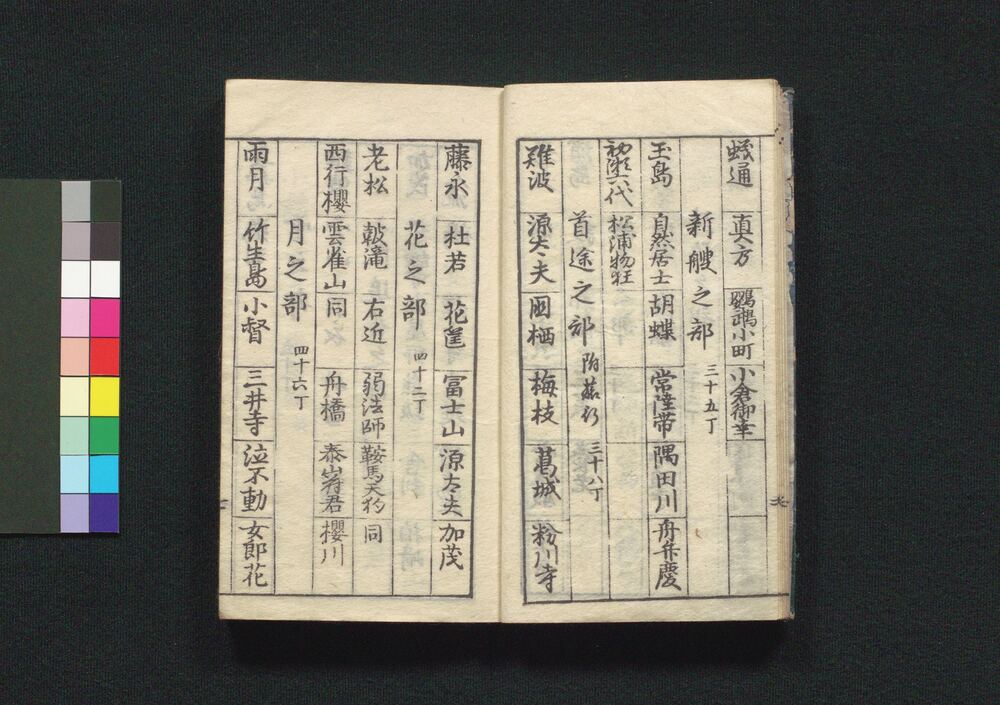 蟻通 真方 鸚鵡小町 小倉御幸
新艘之部 三十九丁
玉島 自然居士 胡蝶 常陸帯 隅田川 舟弁慶
初瀬六代 松浦物狂
首途之部 附 三十八丁
難波 源太夫 国栖 梅枝 葛城 粉川寺
藤永 杜若 花筐 冨士山 源太夫 加茂
花之部 四十二丁
老松 皷滝 右近 弱法師 鞍馬天狗 同
西行櫻 雲雀山 同 舟橋 泰山府君 櫻川
月之部 四十六丁
雨月 竹生島 小督 三井寺 泣不動 女郎花